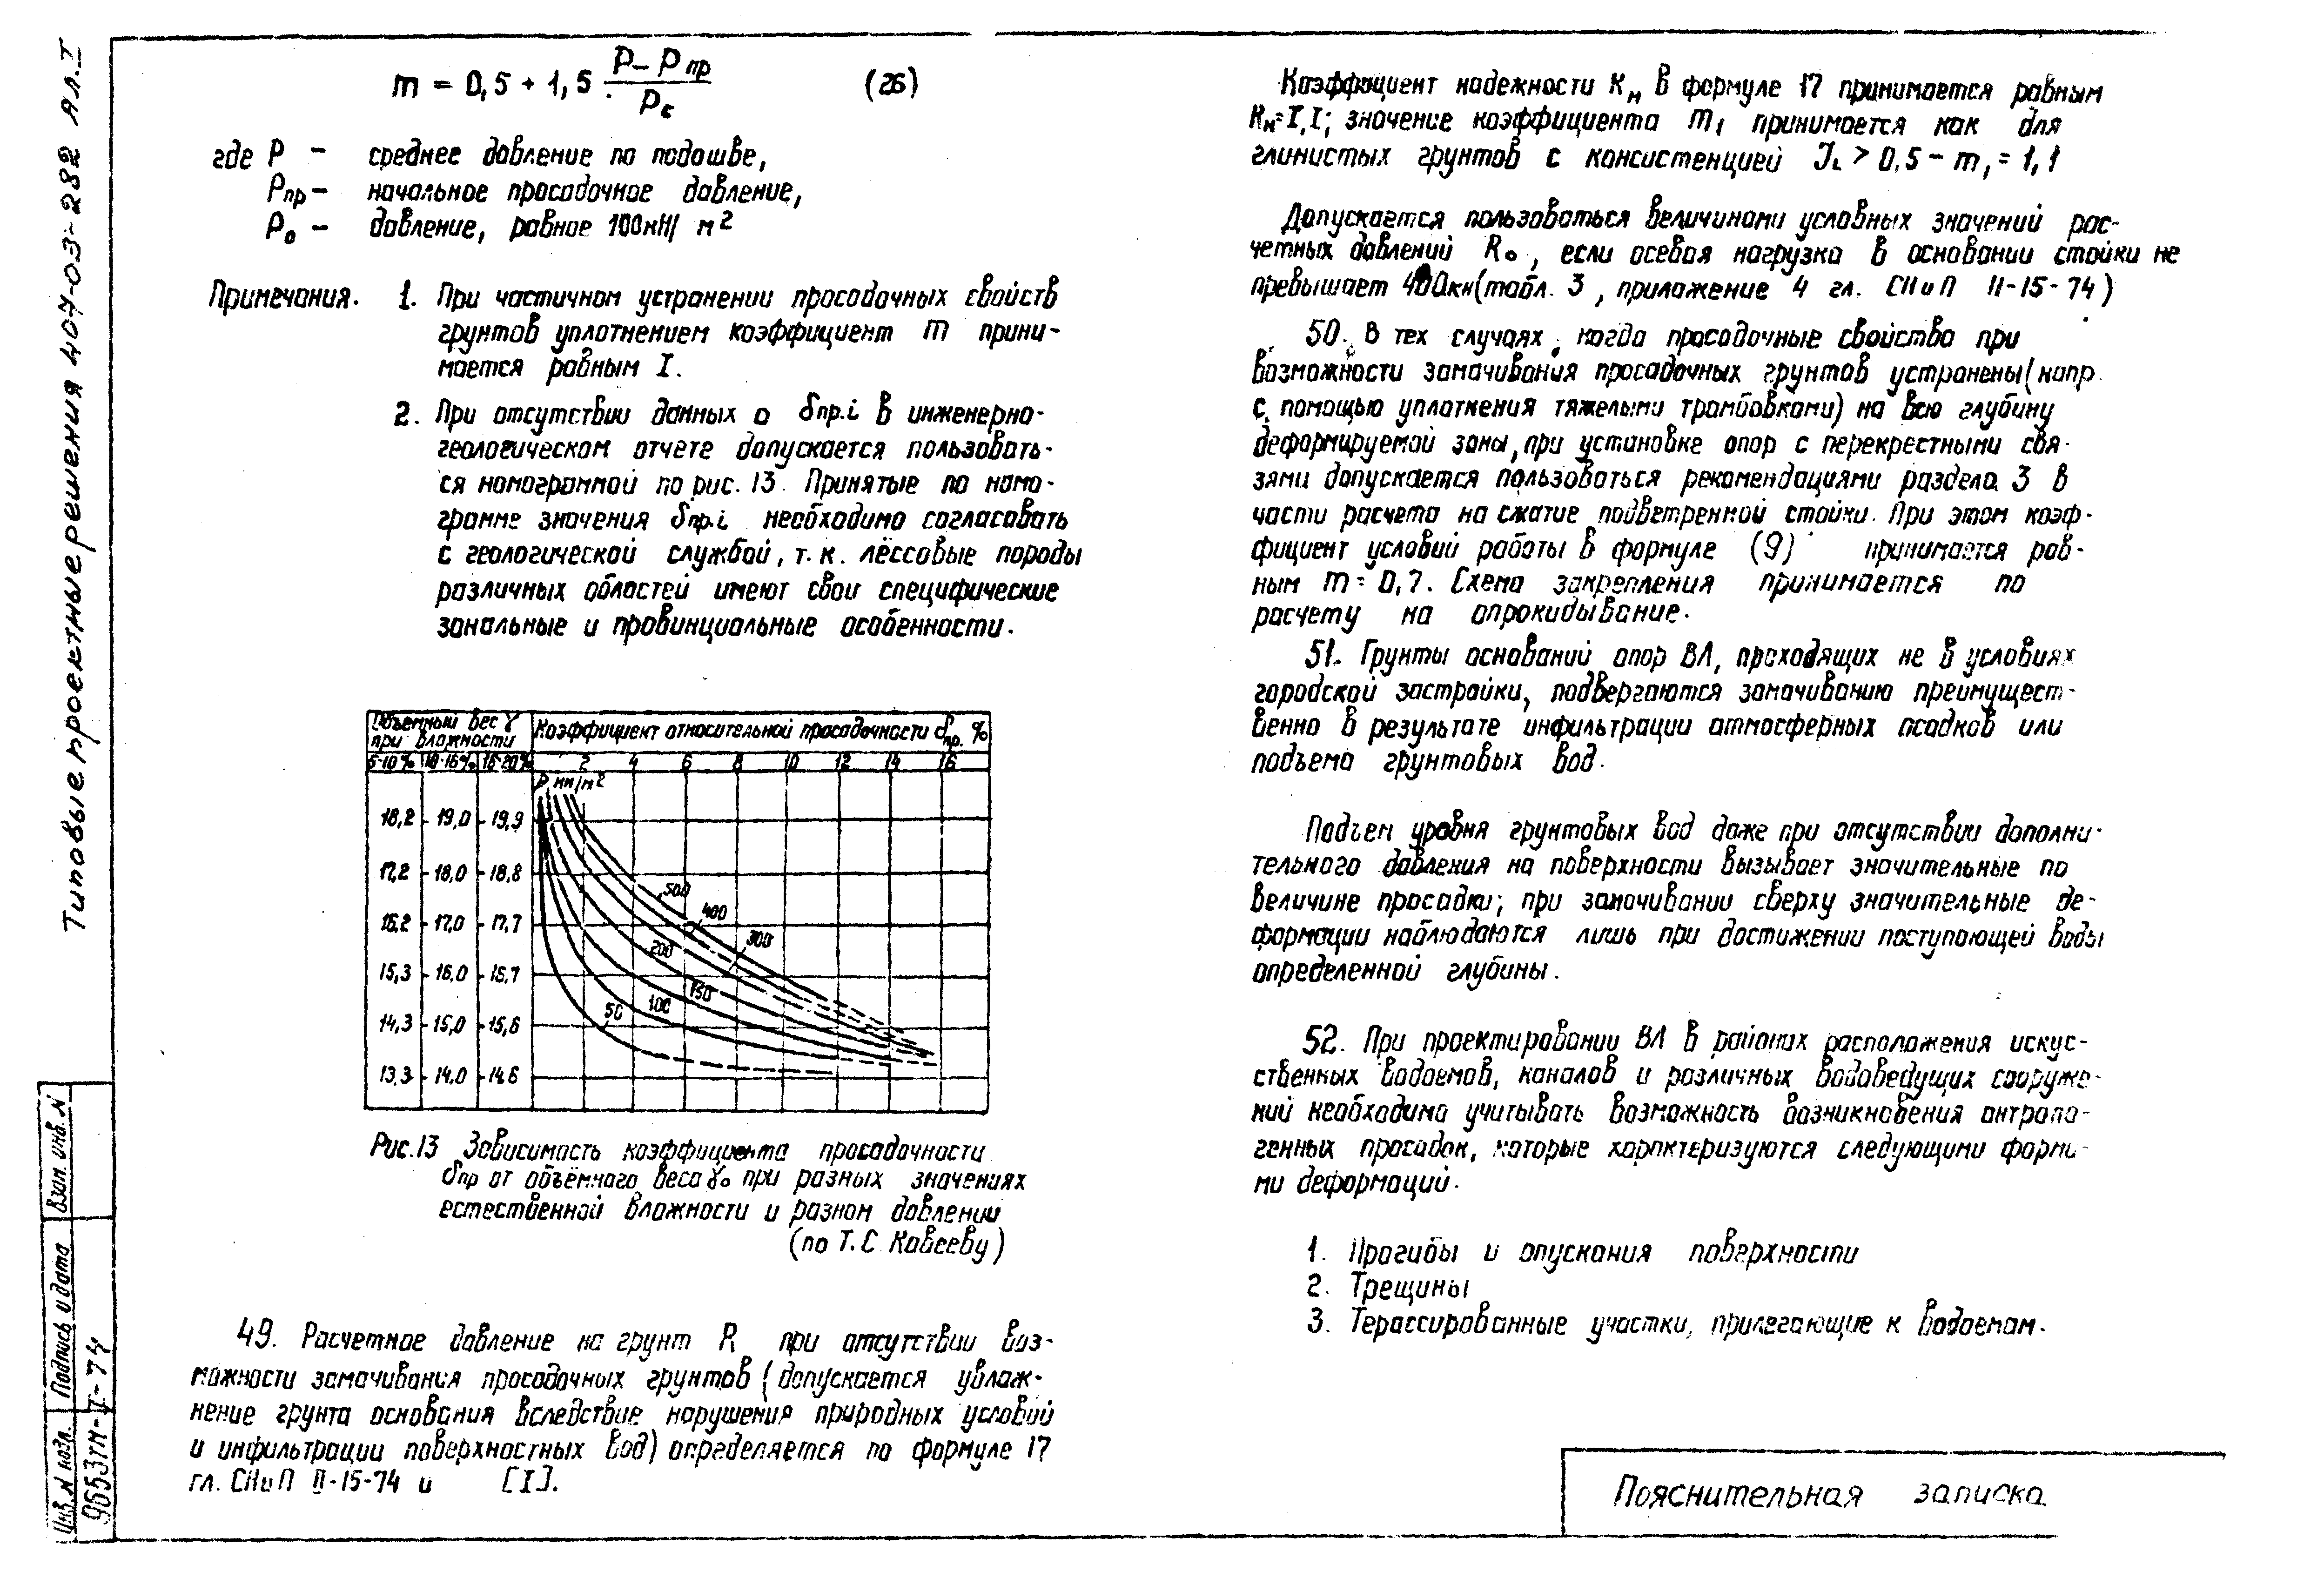 Типовые проектные решения 407-03-282 Ал.I
m = 0,5 + 1,5 (P - Pпр)/Pс (26)
где P – среднее давление по подошве,
Pпр – начальное просадочное давление,
P₀ – давление, равное 100кН/м²
Примечания. 1. При частичном устранении просадочных свойств
грунтов уплотнением коэффициент m прини-
мается равным I.
2. При отсутствии данных о δпр.i в инженерно-
геологическом отчете допускается пользовать-
ся номограммой по рис. 13. Принятые по номо-
грамме значения δпр.i необходимо согласовать
с геологической службой, т.к. лёссовые породы
различных областей имеют свои специфические
зональные и провинциальные особенности.
Объемный вес γ при влажности
Коэффициент относительной просадочности δпр. %
5-10% 10-15% 15-20% 2 4 6 8 10 12 14 16
P мн/м²
18,2 19,0 19,9
17,2 18,0 18,8
16,2 17,0 17,7
15,3 16,0 16,7
14,3 15,0 15,6
13,3 14,0 14,6
500
400
300
200
150
100
50
Рис.13 Зависимость коэффициента просадочности
δпр от объёмного веса γ₀ при разных значениях
естественной влажности и разном давлении
(по Т.С. Кавееву)
49. Расчетное давление на грунт R при отсутствии воз-
можности замачивания просадочных грунтов (допускается увлаж-
нение грунта основания вследствие нарушения природных условий
и инфильтрации поверхностных вод) определяется по формуле 17
гл. СНиП II-15-74 и [I].
Коэффициент надежности Kн в формуле 17 принимается равным
Kн=I,I; значение коэффициента m₁ принимается как для
глинистых грунтов с консистенцией JL > 0,5 – m₁ = 1,1
Допускается пользоваться величинами условных значений рас-
четных давлений R₀, если осевая нагрузка в основании стойки не
превышает 400кн (табл. 3, приложение 4 гл. СНиП II-15-74)
50. В тех случаях, когда просадочные свойства при
возможности замачивания просадочных грунтов устранены (напр.
с помощью уплотнения тяжелыми трамбовками) на всю глубину
деформируемой зоны, при установке опор с перекрестными свя-
зями допускается пользоваться рекомендациями раздела 3 в
части расчета на сжатие подветренной стойки. При этом коэф-
фициент условий работы в формуле (9) принимается рав-
ным m = 0,7. Схема закрепления принимается по
расчету на опрокидывание.
51. Грунты оснований опор ВЛ, проходящих не в условиях
городской застройки, подвергаются замачиванию преимущест-
венно в результате инфильтрации атмосферных осадков или
подъема грунтовых вод.
Подъем уровня грунтовых вод даже при отсутствии дополни-
тельного давления на поверхности вызывает значительные по
величине просадки; при замачивании сверху значительные де-
формации наблюдаются лишь при достижении поступающей воды
определенной глубины.
52. При проектировании ВЛ в районах расположения искус-
ственных водоемов, каналов и различных водоведущих сооруже-
ний необходимо учитывать возможность возникновения антропо-
генных просадок, которые характеризуются следующими форма-
ми деформаций.
1. Прогибы и опускания поверхности
2. Трещины
3. Терассированные участки, прилегающие к водоемам.
Пояснительная записка
Взам. инв. N
Подпись и дата
Инв. N подл.
9653тм-I-74